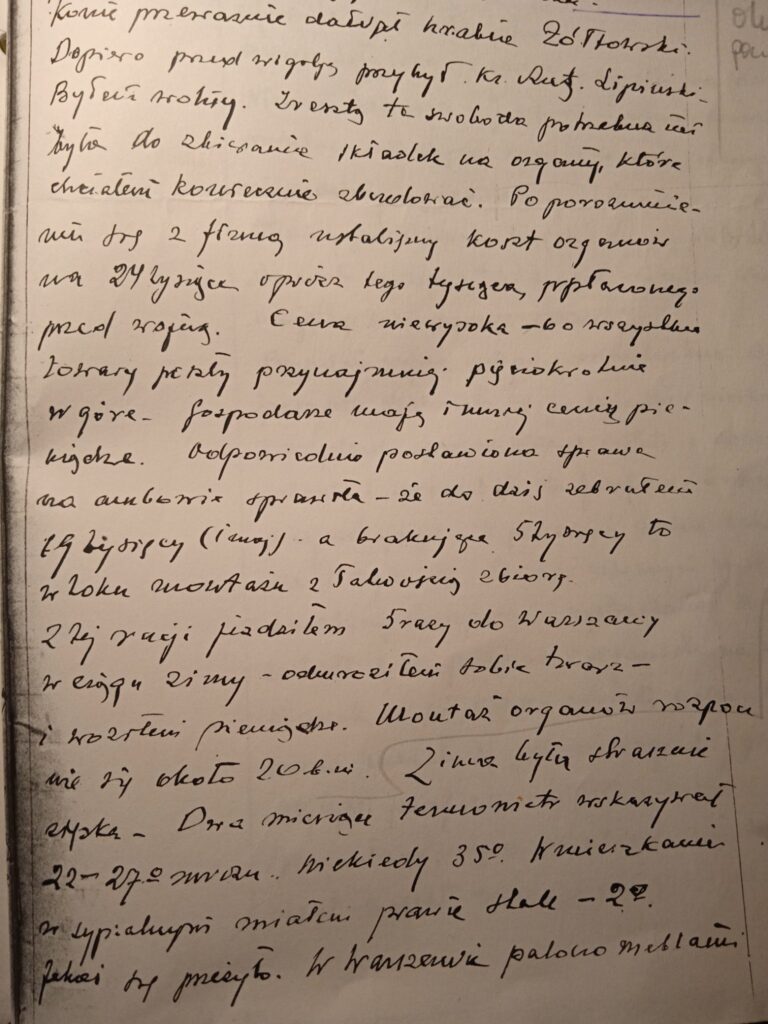 Konie przeważnie dał hrabia Żółtowski.
Dopiero przed wigilją przybył ks. Lipiński.
Byłem wolny. Zresztą ta swoboda potrzebna mi
była do zbierania składek na organy, które
chciałem koniecznie zbudować. Po porozumie-
niu się z firmą ustaliliśmy koszt organów
na 24 tysiące oprócz tego tysiąca, wpłaconego
przed wojną. Cena niewysoka – bo wszystkie
towary poszły przynajmniej pięciokrotnie
w górę – Gospodarze mają i mniej cenią pie-
niądze. Odpowiednio postawiona sprawa
na ambonie sprawiła – że do dziś zebrałem
19 tysięcy (1 maj) – a brakujące 5 tysięcy to
w toku montażu z łatwością zbiorę.
Z tej racji jeździłem 5 razy do Warszawy
w ciągu zimy – odmroziłem sobie twarz –
i woziłem pieniądze. Montaż organów rozpocz
nie się około 20 b.m. Zima była strasznie
ciężka – Dwa miesiące termometr wskazywał
22–27° mrozu. Niekiedy 35°. W mieszkaniu
w sypialnym miałem prawie stale – 2°.
Jakoś się przeżyło. W Warszawie palono meblami